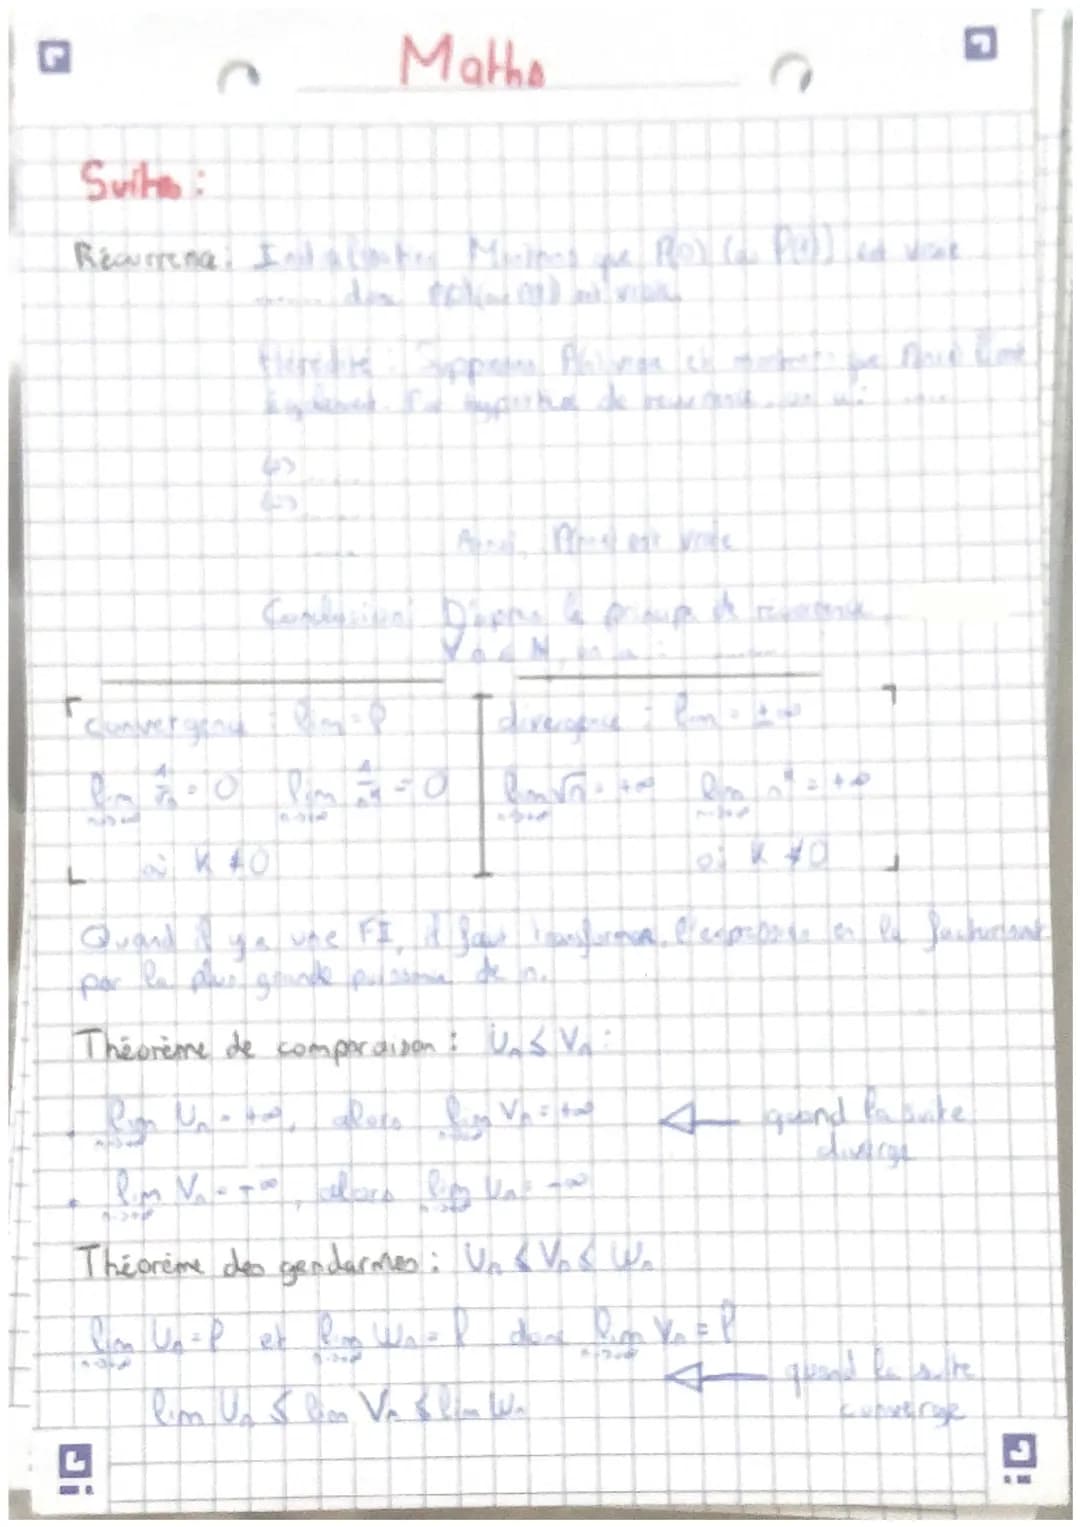 Maths
Suites :
Récurrence : Initialisation Montrons que P(0) (ou P(1)) est vraie
..... donc P(0) (ou P(1)) est vraie
Hérédité : Supposons vraie et montrons que
également. Par hypothèse de récurrence, on a : .....
<=> .....
<=> .....
..... Ainsi, P(n+1) est vraie
Conclusion : D'après le principe de récurrence
∀n ∈ N, on a : .....
convergence : lim = l
divergence : lim = ±∞
lim 1/√n = 0 lim 1/n^k = 0
n→+∞ n→+∞
où K ≠ 0
lim √n = +∞ lim n^k = +∞
n→+∞ n→+∞
où K ≠ 0
Quand il y a une FI, il faut transformer l'expression en la factorisant
par la plus grande puissance de n.
Théorème de comparaison : Un ≤ Vn :
• lim Un = +∞, alors lim Vn = +∞ quand la suite
n→+∞ n→+∞ diverge
• lim Vn = -∞, alors lim Un = -∞
n→+∞ n→+∞
Théorème des gendarmes : Un ≤ Vn ≤ Wn
lim Un = l et lim Wn = l donc lim Vn = l
n→+∞ n→+∞ n→+∞
quand la suite
lim Un ≤ lim Vn ≤ lim Wn converge